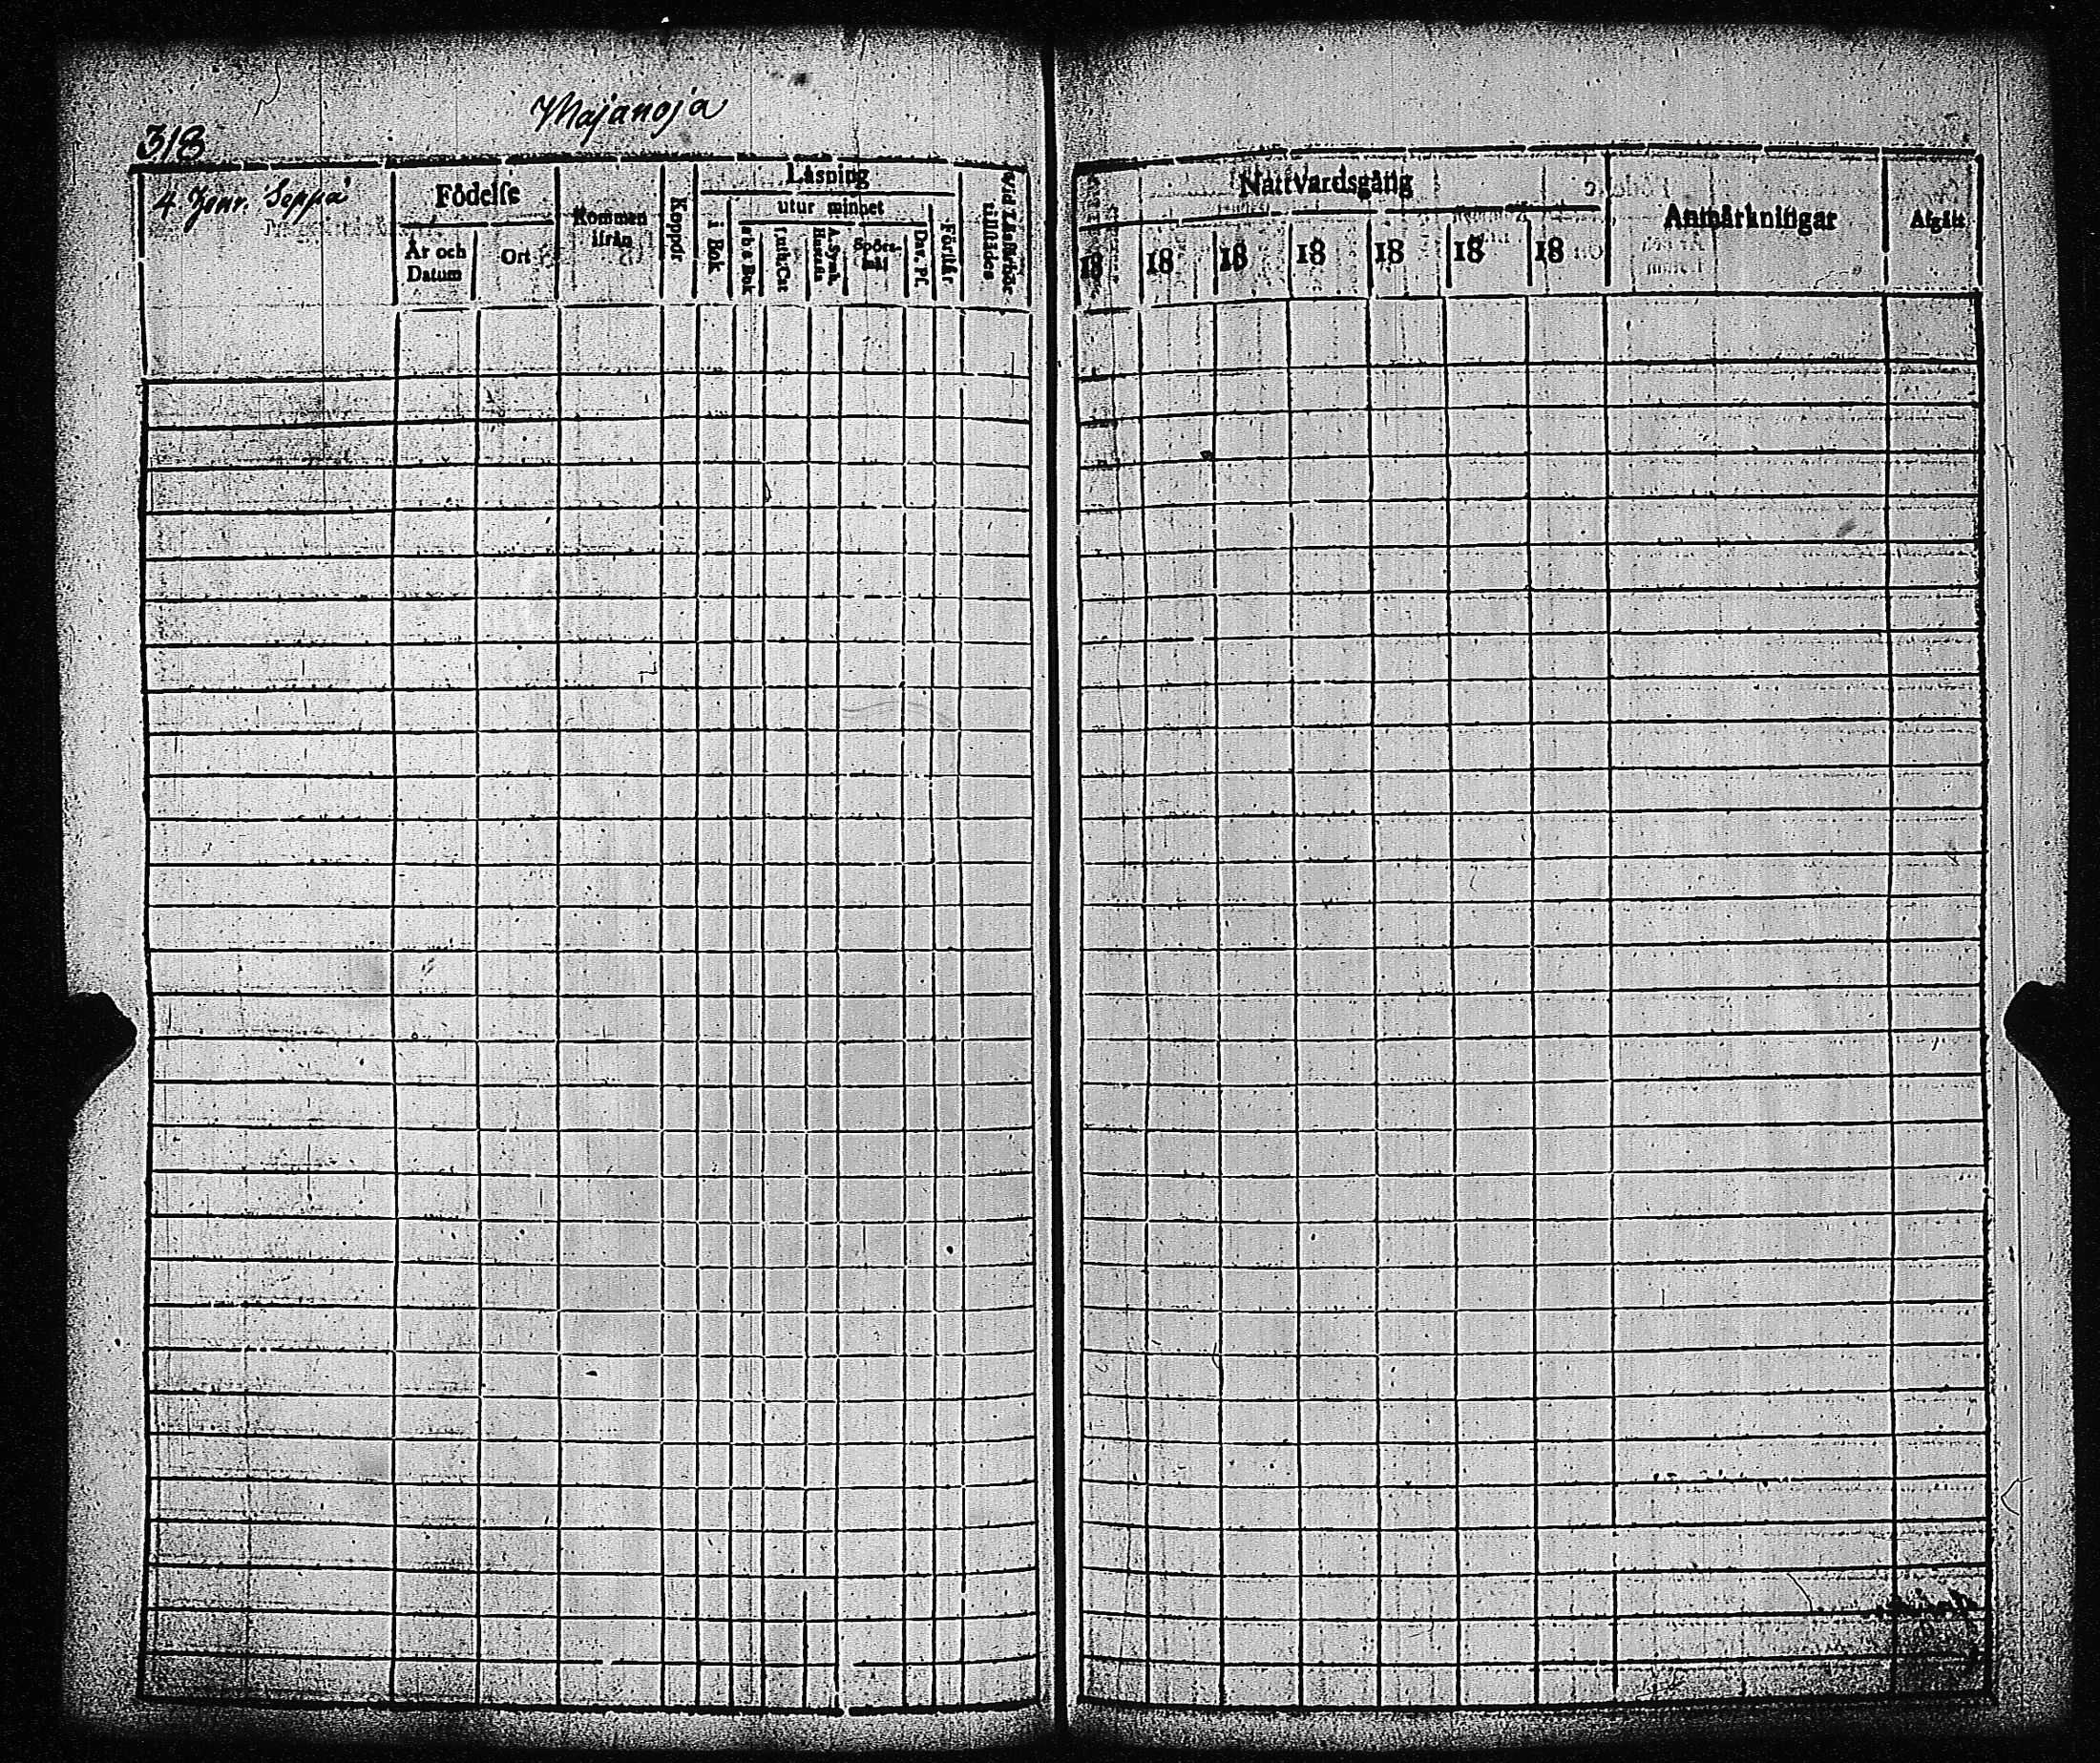 Majanoja
318
4 Jonr. Seppä
Födelse
År och Datum
Ort
Kommen ifrån
Koppor
Läsning
i Bok
utur minnet
a b c Bok
Luth. Cat
A. Symb. Hustafla
Spörsmål
Dav. Ps.
Förstår
vid Läsförhör tillstädes
Nattvardsgång
18 18 18 18 18 18 18
Anmärkningar
Afgått